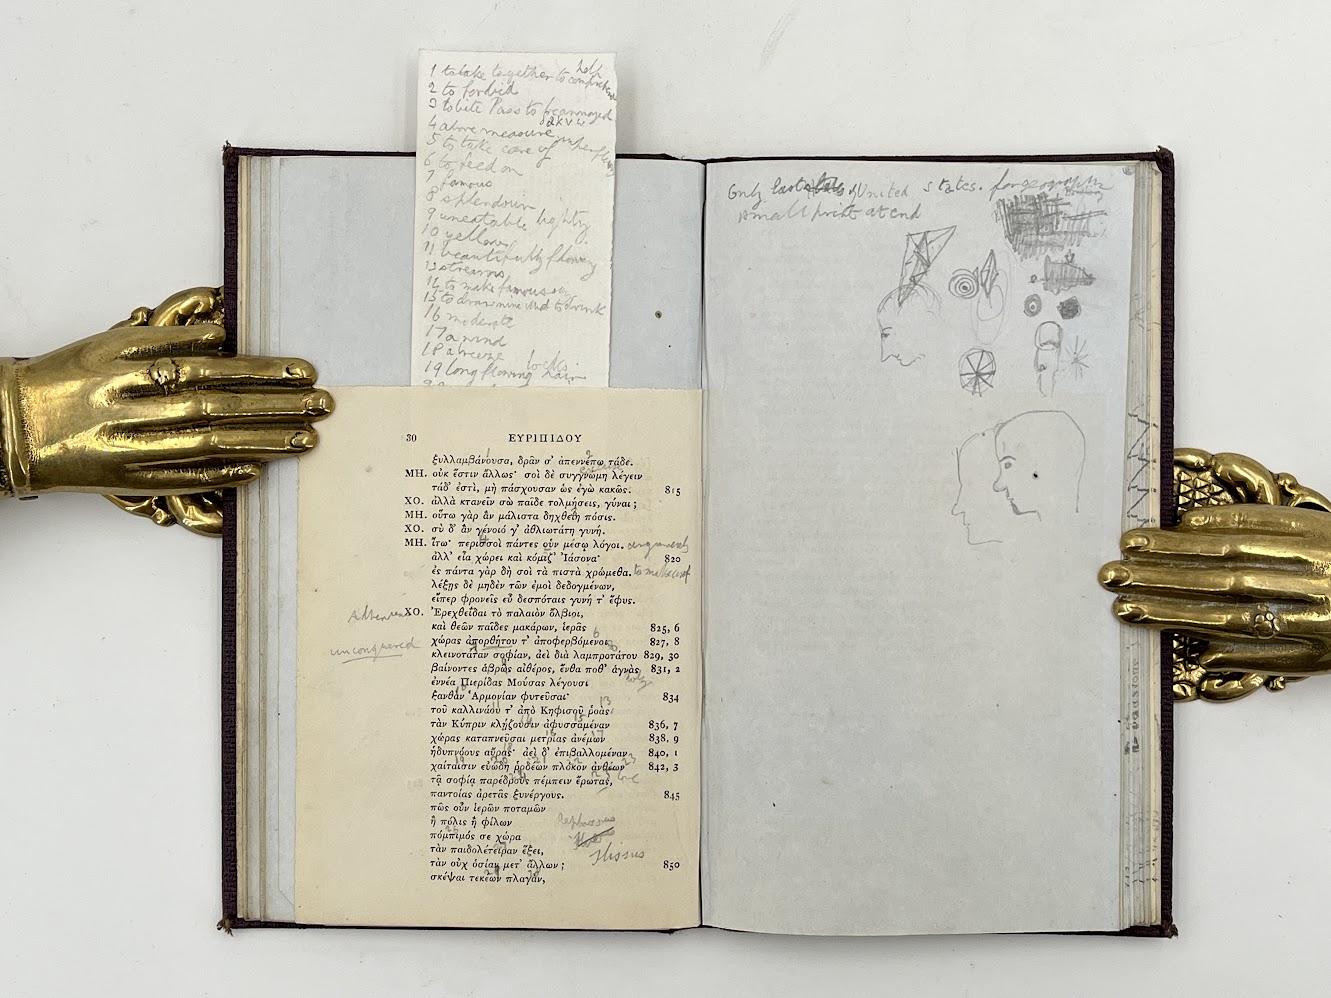 1 to take together to comprehend
help
2 to forbid
3 to bite Pass to be annoyed
4 above measure superfluous
5 to take care of
6 to feed on
7 famous
8 splendour
9 uneatable lightly
10 yellow
11 beautifully flowing
13 streams
14 to make famous
15 to draw wine and to drink
16 moderate
17 a wind
18 a breeze
19 long flowing hair
locks
30 ΕΥΡΙΠΙΔΟΥ
ξυλλαμβάνουσα, δρᾶν σ' ἀπεννέπω τάδε.
ΜΗ. οὐκ ἔστιν ἄλλως· σοὶ δὲ συγγνώμη λέγειν
τάδ' ἐστί, μὴ πάσχουσαν ὡς ἐγὼ κακῶς. 815
ΧΟ. ἀλλὰ κτανεῖν σὼ παῖδε τολμήσεις, γύναι;
ΜΗ. οὕτω γὰρ ἂν μάλιστα δηχθείη πόσις.
ΧΟ. σὺ δ' ἂν γένοιό γ' ἀθλιωτάτη γυνή.
ΜΗ. ἴτω· περισσοὶ πάντες οὑν μέσῳ λόγοι. arguments
ἀλλ' εἶα χώρει καὶ κόμιζ' Ἰάσονα· 820
ἐς πάντα γὰρ δὴ σοὶ τὰ πιστὰ χρώμεθα. to make use of
λέξῃς δὲ μηδὲν τῶν ἐμοὶ δεδογμένων,
εἴπερ φρονεῖς εὖ δεσπόταις γυνή τ' ἔφυς.
Athenian ΧΟ. Ἐρεχθεΐδαι τὸ παλαιὸν ὄλβιοι,
καὶ θεῶν παῖδες μακάρων, ἱερᾶς 825, 6
unconquered χώρας ἀπορθήτου τ' ἀποφερβόμενοι 827, 8
κλεινοτάταν σοφίαν, ἀεὶ διὰ λαμπροτάτου 829, 30
βαίνοντες ἁβρῶς αἰθέρος, ἔνθα ποθ' ἁγνὰς 831, 2
holy
ἐννέα Πιερίδας Μούσας λέγουσι
ξανθὰν Ἁρμονίαν φυτεῦσαι· 834
τοῦ καλλινάου τ' ἀπὸ Κηφισοῦ ῥοὰς
τὰν Κύπριν κλῄζουσιν ἀφυσσαμέναν 836, 7
χώρας καταπνεῦσαι μετρίας ἀνέμων 838, 9
ἡδυπνόους αὔρας· ἀεὶ δ' ἐπιβαλλομέναν 840, 1
χαίταισιν εὐώδη ῥοδέων πλόκον ἀνθέων 842, 3
τᾷ σοφίᾳ παρέδρους πέμπειν ἔρωτας,
παντοίας ἀρετᾶς ξυνέργους. 845
πῶς οὖν ἱερῶν ποταμῶν
ἢ πόλις ἢ φίλων
πόμπιμός σε χώρα
τὰν παιδολέτειραν ἕξει,
Ilissus
τὰν οὐχ ὁσίαν μετ' ἄλλων; 850
σκέψαι τεκέων πλαγάν,
Only last of United states. for geography
small print at end